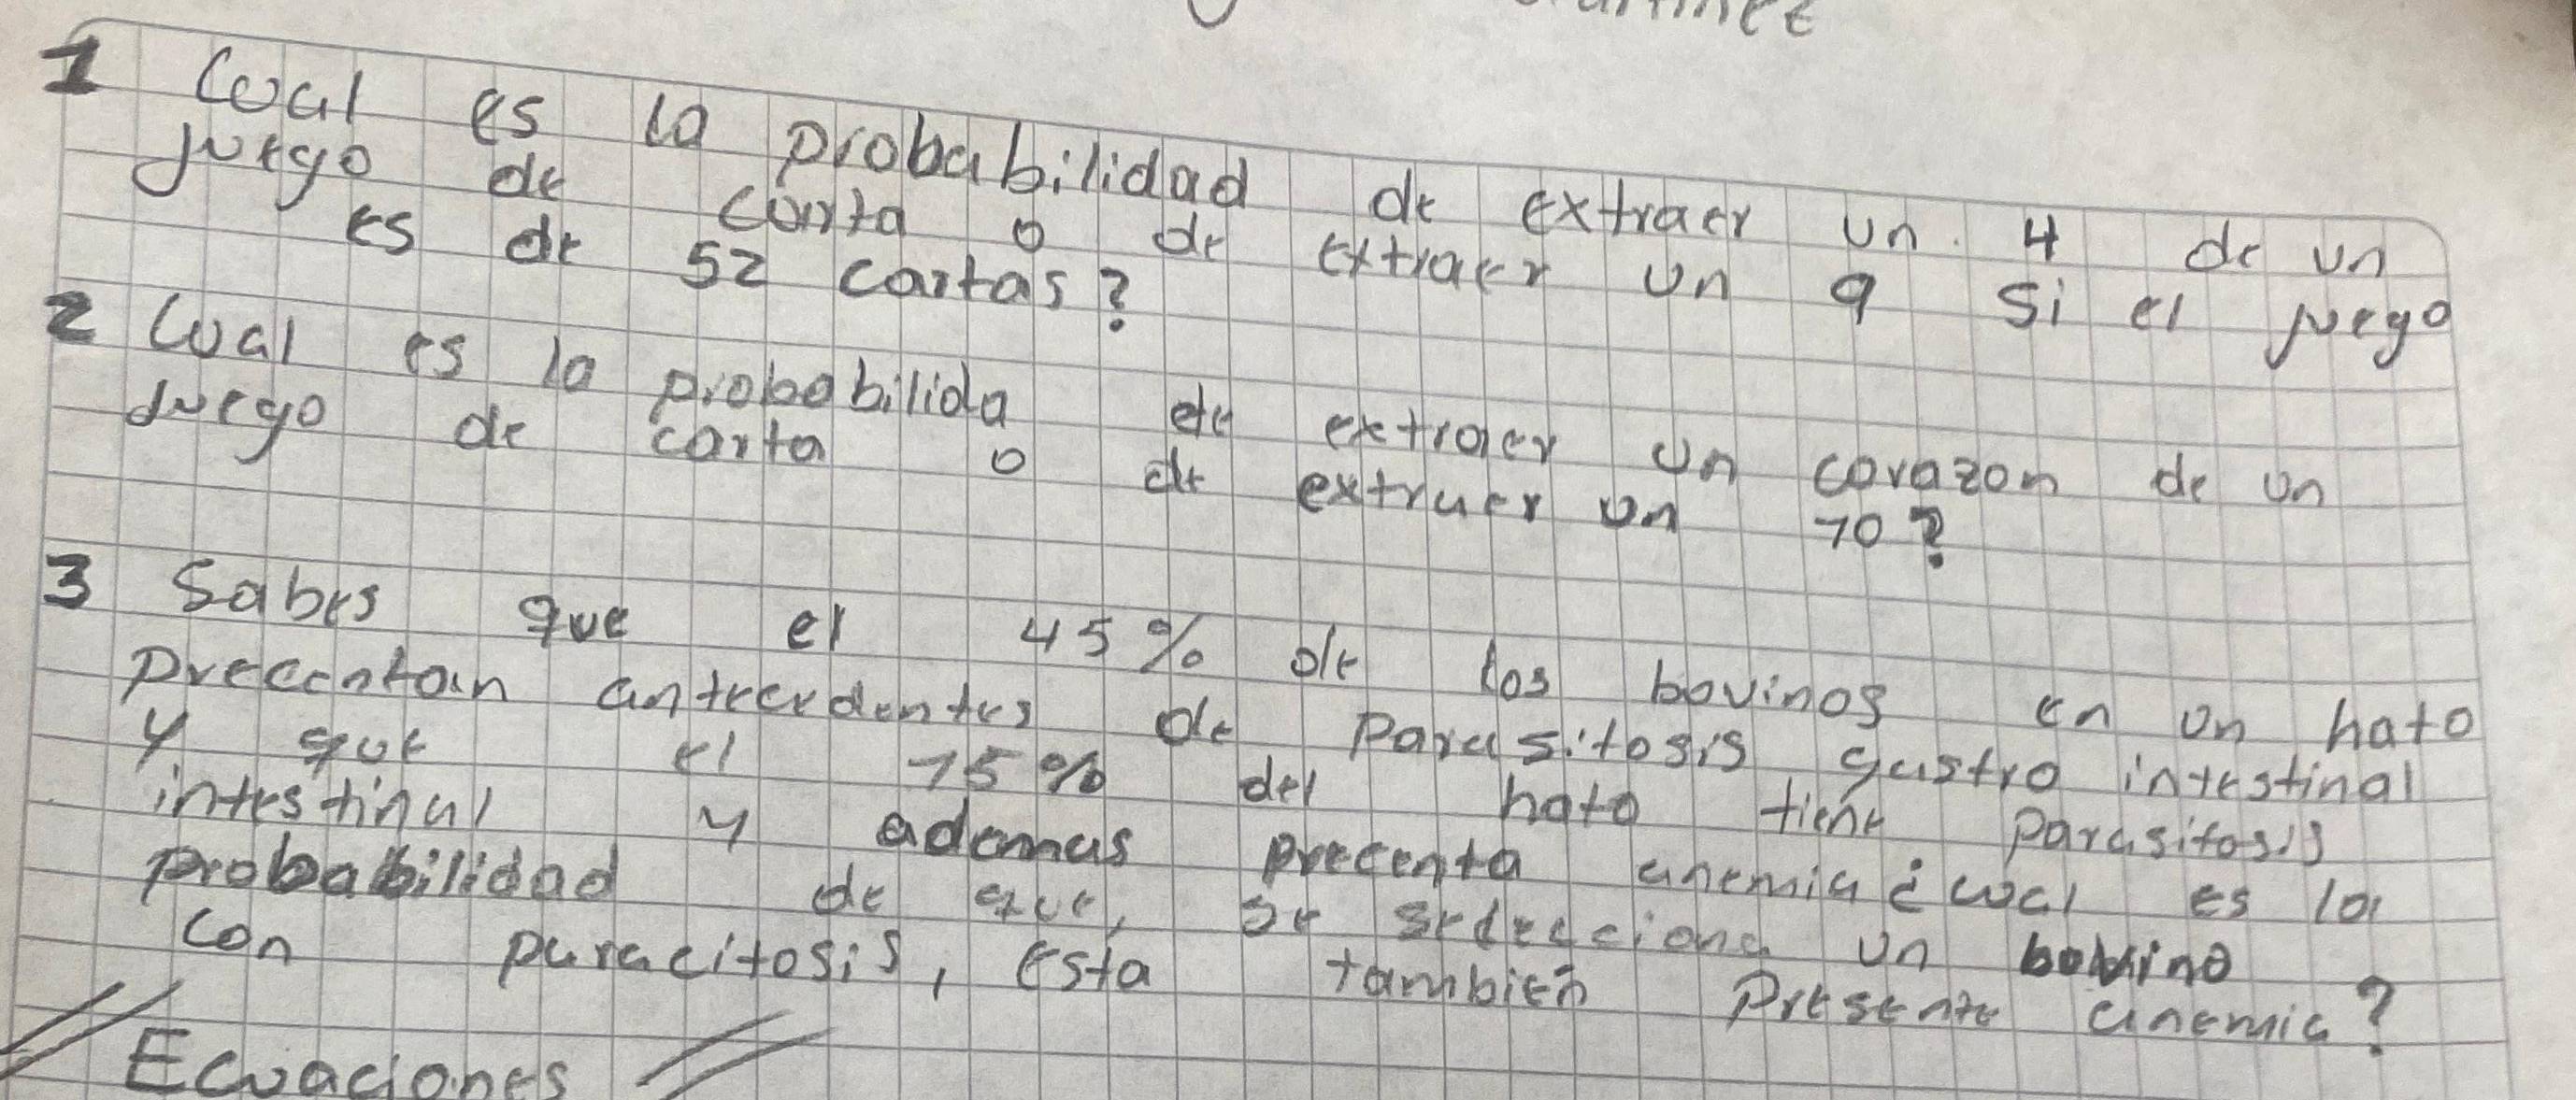 1 Cual es la probabilidad de extraer un 4 de un
juego de carta o de extraer un 9 si el juego
es de 52 cartas?
2 Cual es la probabilida de extraer un corazon de un
Juego de carta o de extraer un 10?
3 Sabes que el 45% de los bovinos en un hato
Precentan antecedentes de Parasitosis gastro intestinal
y que el 15% del hato tiene Parasitosis
intestinal y ademas precenta anemia ¿cual es la
probabilidad de que, se selecciona un bovino
con paracitosis, esta también Presente anemia?
Ecuaciones